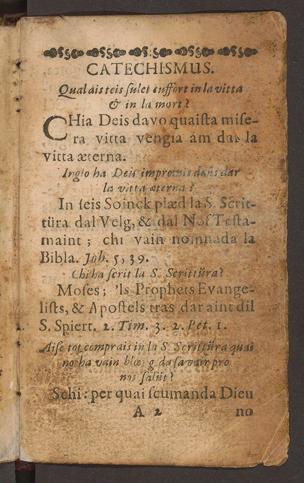 CATECHISMUS.
Qual ais teis sulet cuffort in la vitta
& in la mort?
CHia Deis davo quaista mise-
ra vitta vengia am dar la
vitta æterna.
ha Deis dar
la vitta æterna?
In seis Soinck plæd la S. Scrit-
türa dal Velg, & dal Nof Testa-
maint; chi vain nomnada la
Bibla. Joh. 5, 39.
Chi ha scrit la S. Scrittüra?
Moses; 'ls Prophets Evange-
lists, & Apostels tras dar aint dil
S. Spiert. 2. Tim. 3. 2. Pet. 1.
tot comprais in la S. Scrittüra quai
no ha vain pro
salüt?
Schi: per quai scumanda Dieu
A 2 no